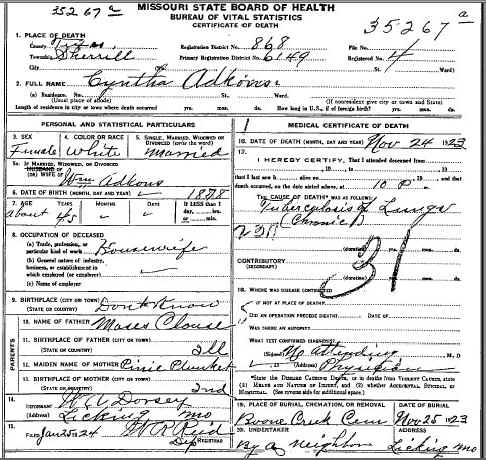 MISSOURI STATE BOARD OF HEALTH
BUREAU OF VITAL STATISTICS
CERTIFICATE OF DEATH
35267 a
35267 a
1. PLACE OF DEATH
County Texas
Registration District No. 868
File No.
Township Sherrill
Primary Registration District No. 6149
Registered No. 4
City
St. Ward)
2. FULL NAME Cyntha Adkons
(a) Residence. No. St., Ward.
(Usual place of abode)
(If nonresident give city or town and State)
Length of residence in city or town where death occurred yrs. mos. ds. How long in U.S., if of foreign birth? yrs. mos. ds.
PERSONAL AND STATISTICAL PARTICULARS
3. SEX
Female
4. COLOR OR RACE
White
5. SINGLE, MARRIED, WIDOWED OR DIVORCED (write the word)
Married
5a. IF MARRIED, WIDOWED, OR DIVORCED
HUSBAND OF
(OR) WIFE OF
Wm Adkons
6. DATE OF BIRTH (MONTH, DAY AND YEAR) 1878
7. AGE YEARS MONTHS DAYS If LESS than 1
day, hrs.
or min.
about 45
8. OCCUPATION OF DECEASED
(a) Trade, profession, or
particular kind of work Housewife
(b) General nature of industry,
business, or establishment in
which employed (or employer)
(c) Name of employer
9. BIRTHPLACE (CITY OR TOWN) Dont Know
(STATE OR COUNTRY)
PARENTS
10. NAME OF FATHER Moses Clouse
11. BIRTHPLACE OF FATHER (CITY OR TOWN)
(STATE OR COUNTRY) Ill
12. MAIDEN NAME OF MOTHER Pinie Plunket
13. BIRTHPLACE OF MOTHER (CITY OR TOWN)
(STATE OR COUNTRY) Ind
14.
INFORMANT W A Dorsey
(Address) Licking Mo
15.
FILED Jan 25 24 W R Reid
Dep REGISTRAR
MEDICAL CERTIFICATE OF DEATH
16. DATE OF DEATH (MONTH, DAY AND YEAR) Nov 24 1923
17.
I HEREBY CERTIFY, That I attended deceased from
, 19 , to , 19
that I last saw h alive on , 19 , and that
death occurred, on the date stated above, at 10 P m.
THE CAUSE OF DEATH WAS AS FOLLOWS:
Tuberculosis of Lungs
(Chronic)
(duration) yrs. mos. ds.
CONTRIBUTORY
(SECONDARY)
(duration) yrs. mos. ds.
31
18. WHERE WAS DISEASE CONTRACTED
IF NOT AT PLACE OF DEATH?
DID AN OPERATION PRECEDE DEATH? DATE OF
WAS THERE AN AUTOPSY?
WHAT TEST CONFIRMED DIAGNOSIS?
(Signed) No attending, M. D.
, 19 (Address) Physician
*State the DISEASE CAUSING DEATH, or in deaths from VIOLENT CAUSES, state
(1) MEANS AND NATURE OF INJURY, and (2) whether ACCIDENTAL, SUICIDAL, or
HOMICIDAL. (See reverse side for additional space.)
19. PLACE OF BURIAL, CREMATION, OR REMOVAL
Boone Creek Cem
DATE OF BURIAL
Nov 25 1923
20. UNDERTAKER
By a Neighbor
Licking Mo